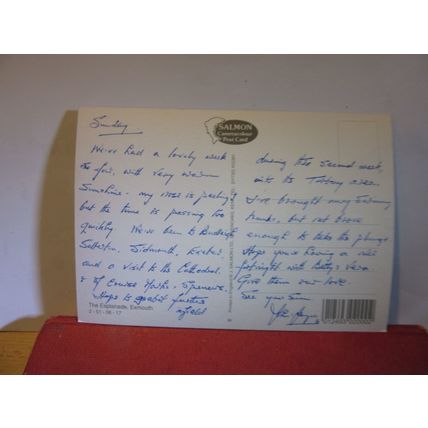 Sunday
We've had a lovely week
so far, with very warm
Sunshine - my nose is peeling
but the time is passing too
quickly. We've been to Budleigh
Salterton, Sidmouth, Exeter
and a visit to the Cathedral.
& of course Marks & Spencers.
Hope to go a bit further
afield
SALMON
Cameracolour
Post Card
during the second week,
into the Torbay area.
I've brought my swimming
trunks, but not brave
enough to take the plunge
Hope you're having a nice
fortnight with Betty & Vera.
Give them our love.
See you soon
The Esplanade, Exmouth
2-51-06-17